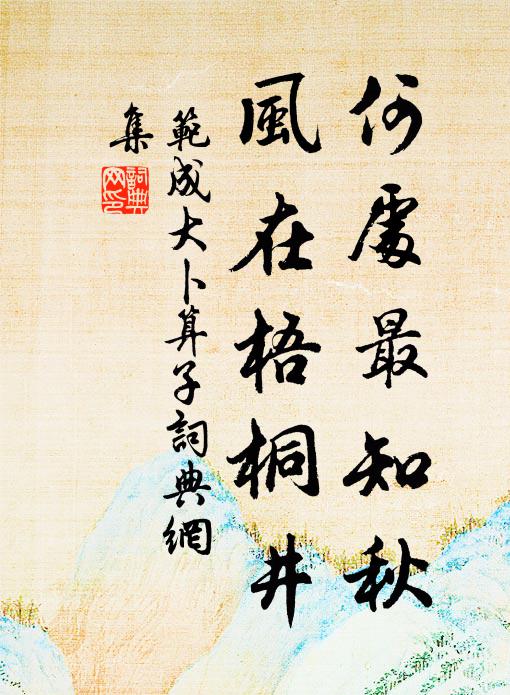 何處最知秋
風在梧桐井
範成大卜算子詞典網
集
詞典
網印